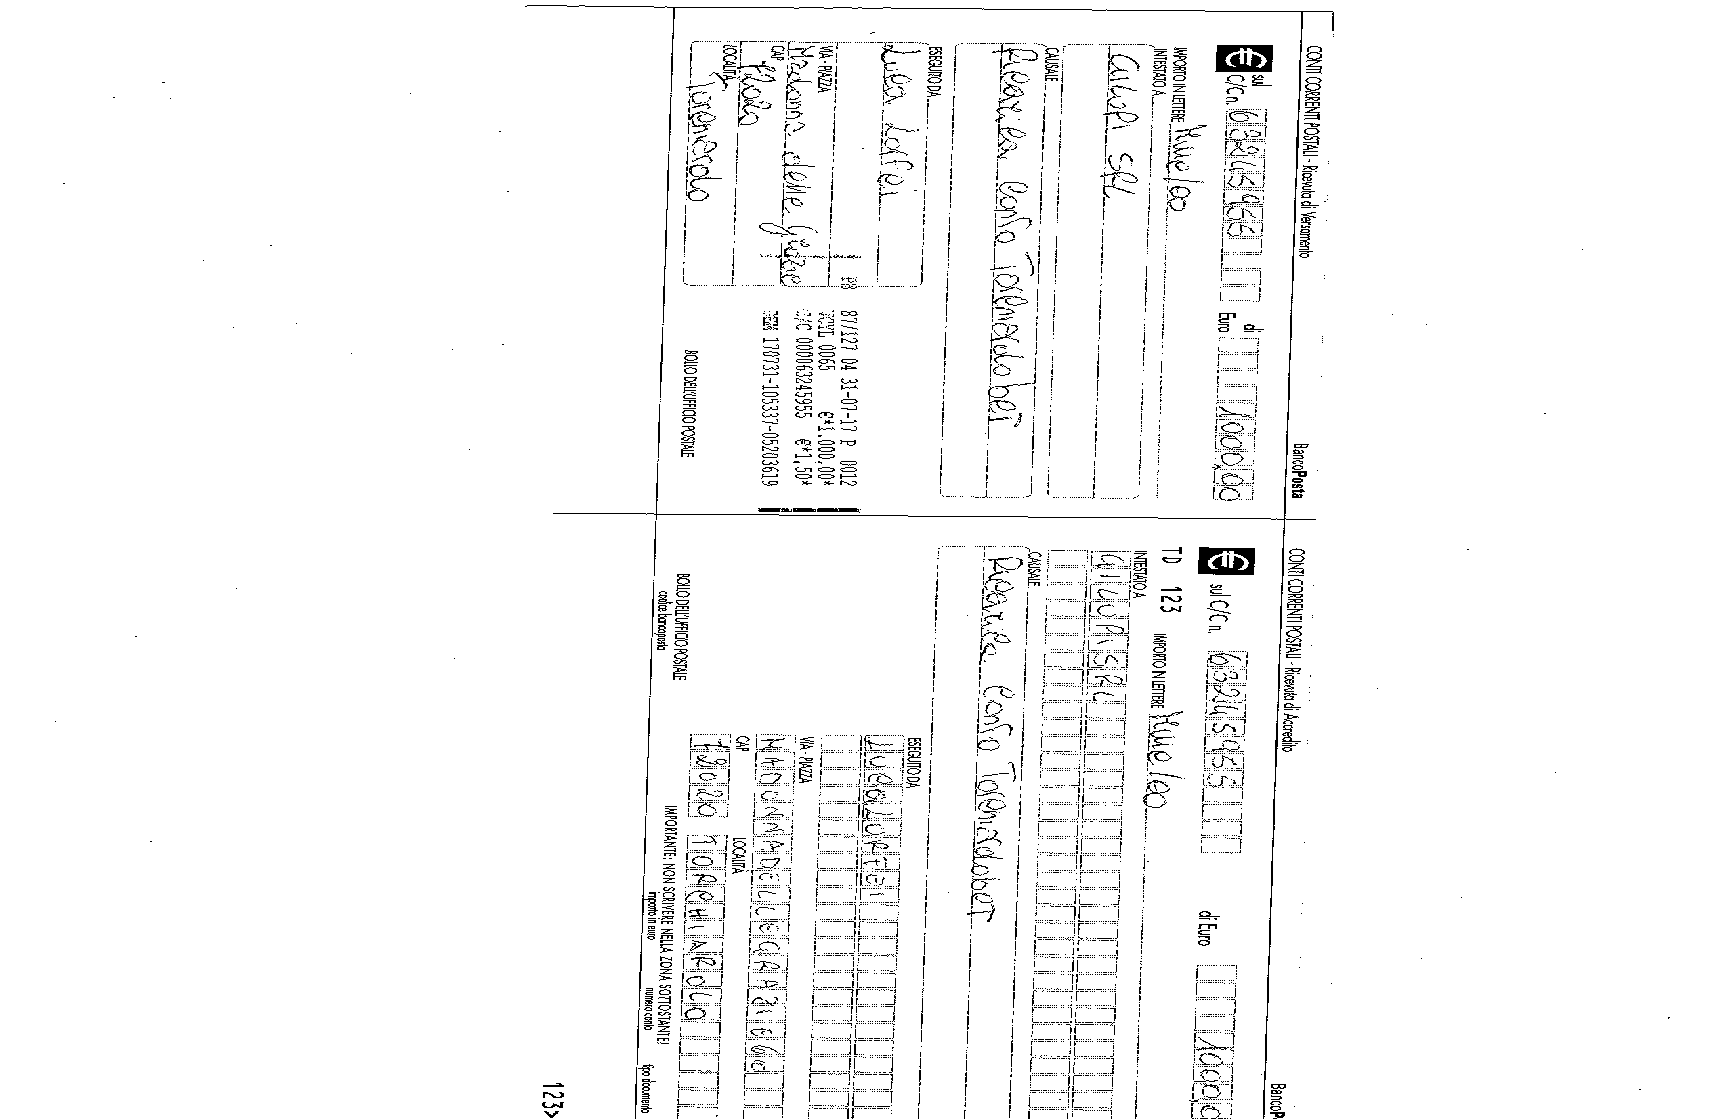 CONTI CORRENTI POSTALI - Ricevuta di Versamento
BancoPosta
€ sul C/C n. 63245955 di Euro 1000,00
IMPORTO IN LETTERE Mille/00
INTESTATO A
SRL
CAUSALE
Ricarica Conto
ESEGUITO DA
Luca
VIA - PIAZZA
Madonna delle Grazie
CAP
72020
LOCALITÀ
87/127 04 31-07-17 P 0012
0065 €*1.000,00*
C/C 000063245955 €*1,50*
178731-105337-05203619
BOLLO DELL'UFFICIO POSTALE
CONTI CORRENTI POSTALI - Ricevuta di Accredito
BancoP
€ sul C/C n. 63245955 di Euro 1000,0
TD 123 IMPORTO IN LETTERE Mille/00
INTESTATO A
SRL
CAUSALE
Ricarica Conto
ESEGUITO DA
VIA - PIAZZA
MADONNA DELLE GRAZIE 60
CAP LOCALITÀ
72020 TORCHIAROLO
BOLLO DELL'UFFICIO POSTALE
codice bancoposta
IMPORTANTE: NON SCRIVERE NELLA ZONA SOTTOSTANTE!
importo in euro numero conto tipo documento
123>